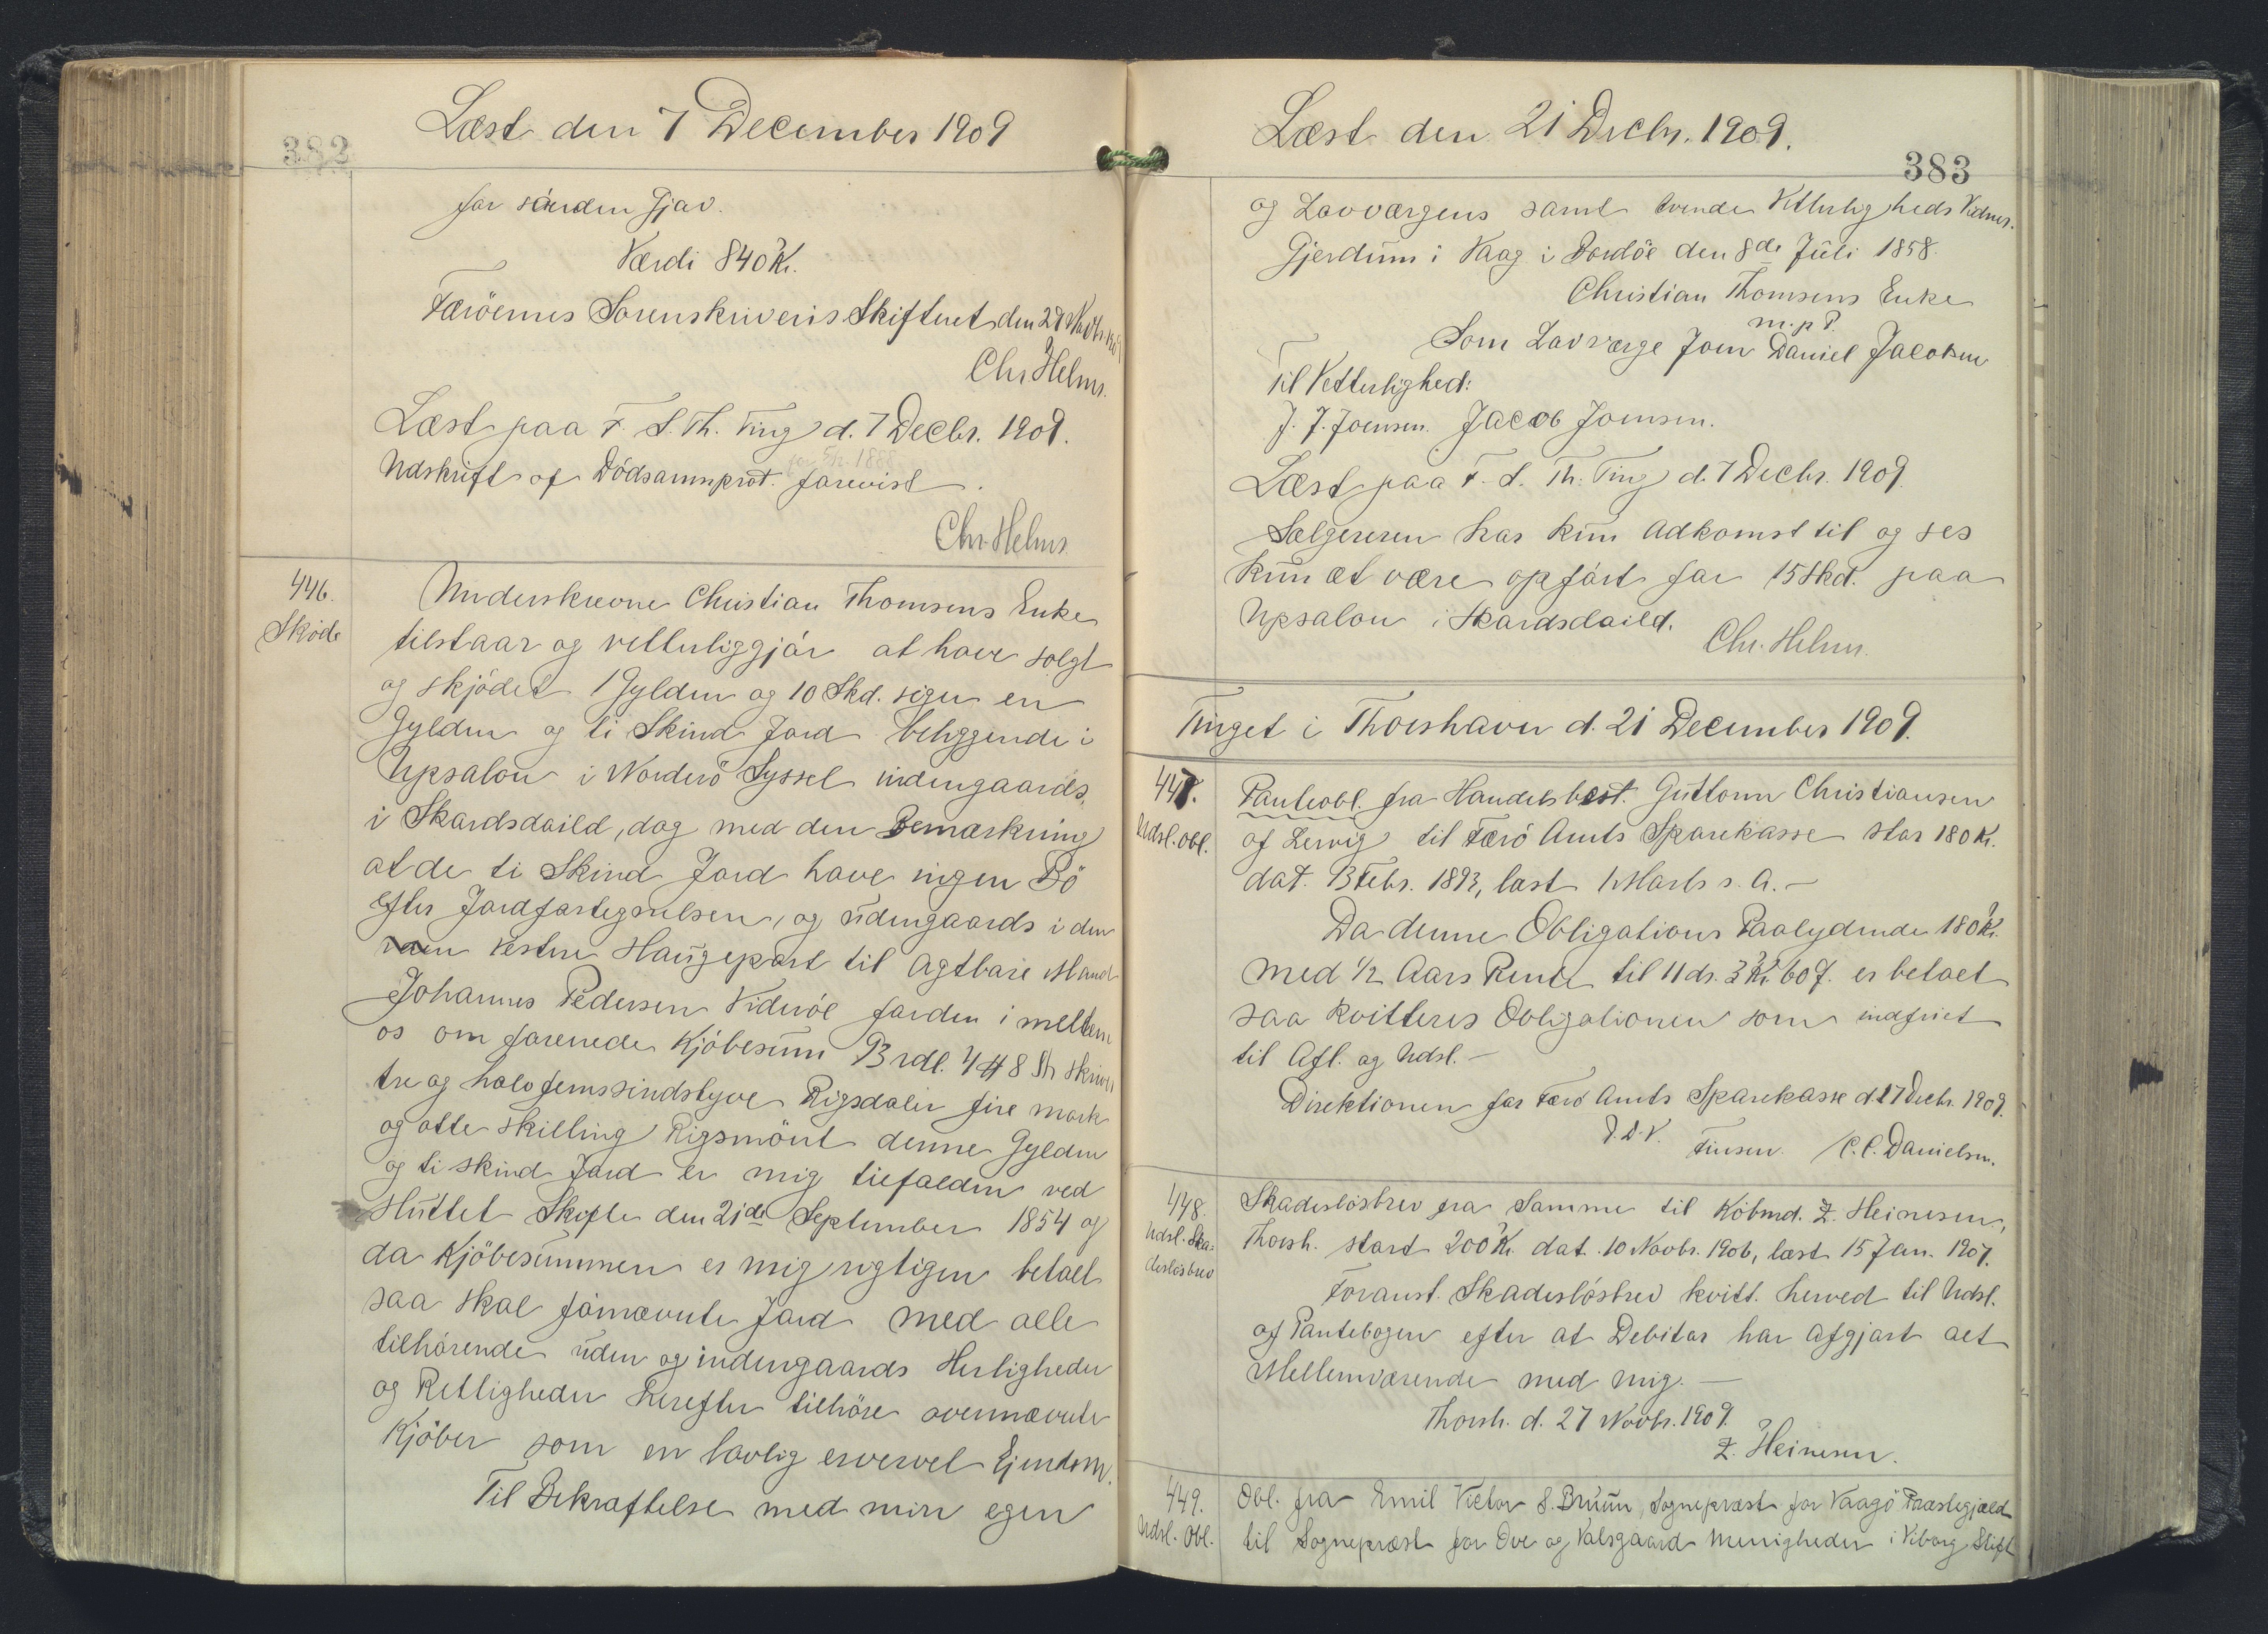 Læst den 7 December 1909
382
for Gjøv.
Værdi 840 Kr.
Færöernes Sorenskriveris Skifteret den 27 Novbr. 1909
Chr Helms.
Læst paa F. S. Th. Ting d. 7 Decbr. 1909.
Udskrift af Dödsanmprot. forevist.
Chr. Helms
446.
Skøde
Underskrevne Christian Thomsens Enke
tilstaar og vitterliggjör at have solgt
og skjödet 1 Gylden og 10 Skd. siger en
Gylden og ti Skind Jord beliggende i
Upsalon i Norderö Syssel indengaards,
i Skardsdaild, dog med den Bemærkning
at de ti Skind Jord have ingen Bö
efter Jordfortegnelsen, og udengaards i den
vestre Haugepart til Agtbare Mand
Johannes Pedersen Videröe for den i mellem
os om forenede Kjöbesum 93 rdl. 4 # 8 Sk skriver
tre og halvfemssindstyve Rigsdaler fire mark
og otte skilling Rigsmönt denne Gylden
og ti skind Jord er mig tilfalden ved
Sluttet Skifte den 21de September 1854 og
da Kjöbesummen er mig rigtigen betalt
saa skal förnævnte Jord med alle
tilhörende uden og indengaards Herligheder
og Rettigheder herefter tilhöre ovennævnte
Kjöber som en lovlig erhvervet Ejendom.
Til Bekræftelse med min egen
Læst den 21 Decbr. 1909.
383
og Lavværgens samt tvende Vitterligheds Vidner.
Gjerdum i Vaag i Bordöe den 8de Juli 1858.
Christian Thomsens Enke
m. p P.
Som Lavværge Joen Daniel Jacobsen
Til Vitterlighed:
J. J. Joensen. Jacob Joensen.
Læst paa F. S. Th. Ting d. 7 Decbr. 1909
Sælgereren har kun Adkomst til og ses
kun at være opfört for 15 Skd. paa
Upsalon i Skardsdaild.
Chr. Helms.
Tinget i Thorshavn d. 21 December 1909.
447.
Udsl. Obl.
Panteobl. fra Handelsbest. Guttorm Christiansen
af Lervig til Færö Amts Sparekasse stor 180 Kr.
dat. 13 Febr. 1893, læst 1 Marts s. A. —
Da denne Obligations Paalydende 180 Kr.
med 1/2 Aars Rente til 11 ds. 3 Kr. 60 Ø. er betalt
saa kvitteres Obligationen som indfriet
til Afl. og Udsl. —
Direktionen for Færö Amts Sparekasse d. 17 Decbr. 1909.
P. D. V. Finsen. C. C. Danielsen.
448.
Udsl. Ska-
deslösbrev
Skadeslösbrev fra Samme til Köbmd. Z. Heinesen,
Thorsh. stort 200 Kr. dat. 10 Novbr. 1906, læst 15 Jan. 1907.
Foranst. Skadeslösbrev kvitt. herved til Udsl.
af Pantebogen efter at Debitor har afgjort alt
Mellemværende med mig. —
Thorsh. d. 27 Novbr. 1909.
Z. Heinesen.
449.
Udsl. Obl.
Obl. fra Emil Victor S. Bruun, Sognepræst for Vaagö Præstegjæld
til Sognepræst for Ove og Valsgaard Menigheder i Viborg Stift